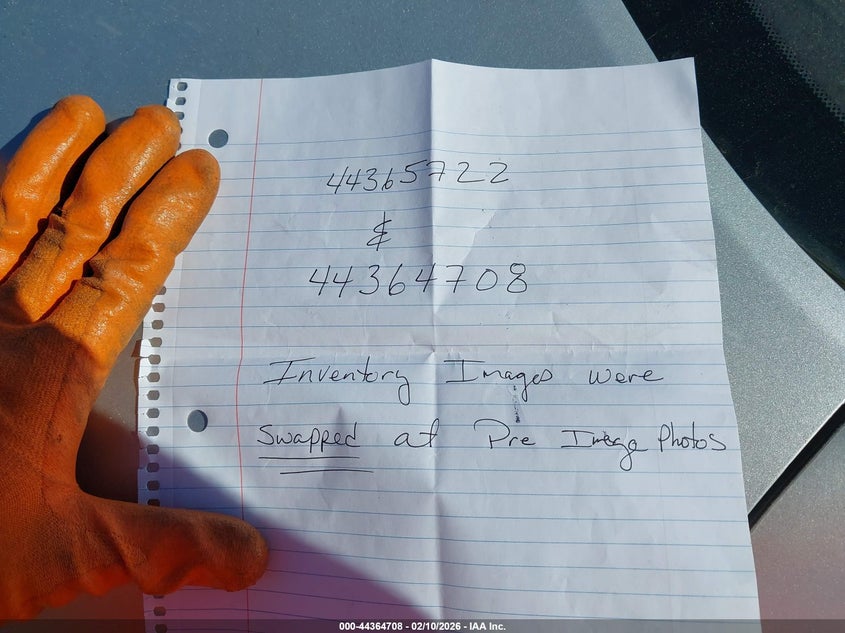 44365722
&
44364708
Inventory Images were
Swapped at Pre Image Photos
000-44364708 - 02/10/2026 - IAA Inc.